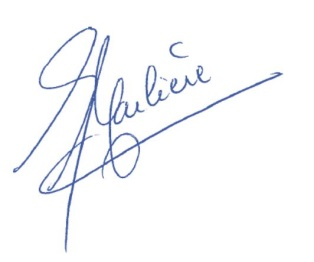 Marlière